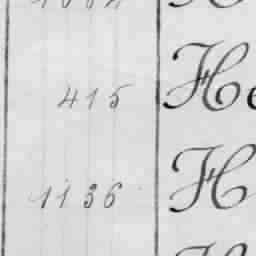 415 He
1136 H